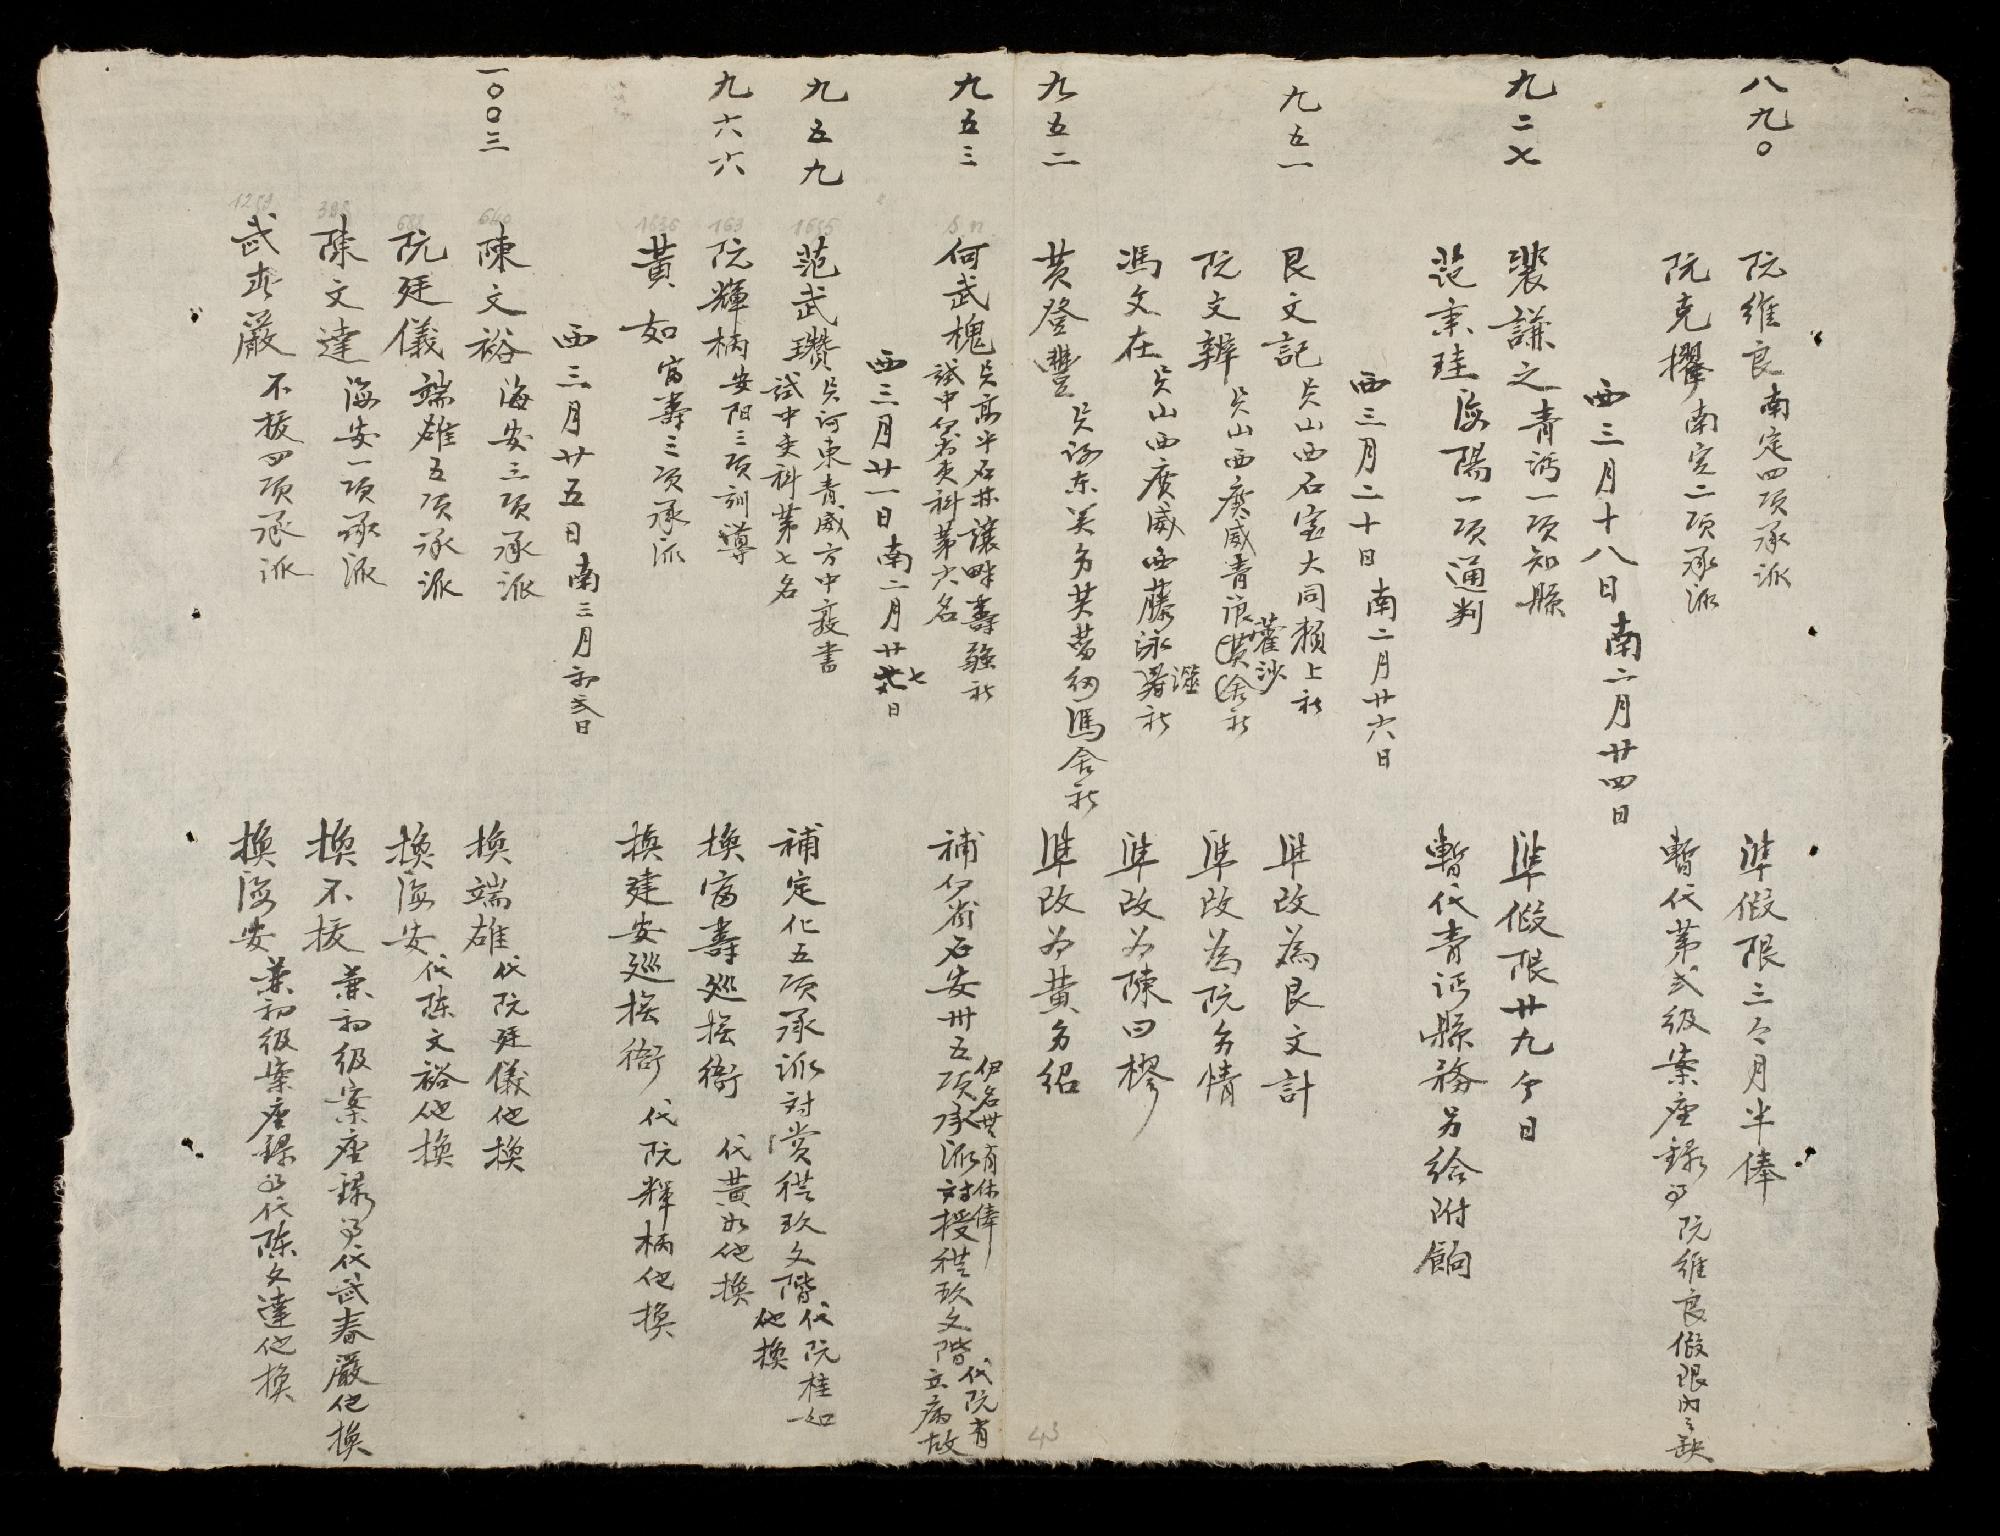 八九〇
阮維良 南定四項承派 準假限三個月半俸
阮克擢 南定二項承派 暫代第弍級案座録事阮維良假限內之缺
西三月十八日南二月廿四日
九二七
裴謙之 青沔一項知縣 準假限廿九今日
范秉珪 海陽一項通判 暫代青沔縣務另給附餉
西三月二十日南二月廿六日
九五一
艮文記 貫山西石室大同賴上社 準改為艮文計
阮文辨 貫山西廣威青浪黄舍社 藿沙 準改為阮多情
馮文在 貫山西廣威西藤泳社 準改为陳曰樛
九五二
黄登豐 舍社 準改为黄多紹
九五三
何武槐 貫高平石林讓畔壽強社
試中保省吏科第六名
補保省石安卅五項承派対授從玖文階 代阮有立病故
伊名無有休俸
西三月廿一日南二月廿七日
九五九
范武瓚 貫河東青威方中耕書
試中吏科第七名
補定化五項承派対賞從玖文階 代阮桂如他換
九六六
阮輝柄 安阳三項訓導 換富壽巡撫衙 代黄如他換
黃如 富壽三項承派 換建安巡撫衙 代阮輝柄他換
西三月廿五日南三月初弍日
一〇〇三
陳文裕 海安三項承派 換端雄 代阮廷儀他換
阮廷儀 端雄五項承派 換海安 代陈文裕他換
陳文達 海安一項承派 換不拔 兼初級案座録事代武春嚴他換
武春嚴 不拔四項承派 換海安 兼初級案座録事代陈文達他換
1636
43